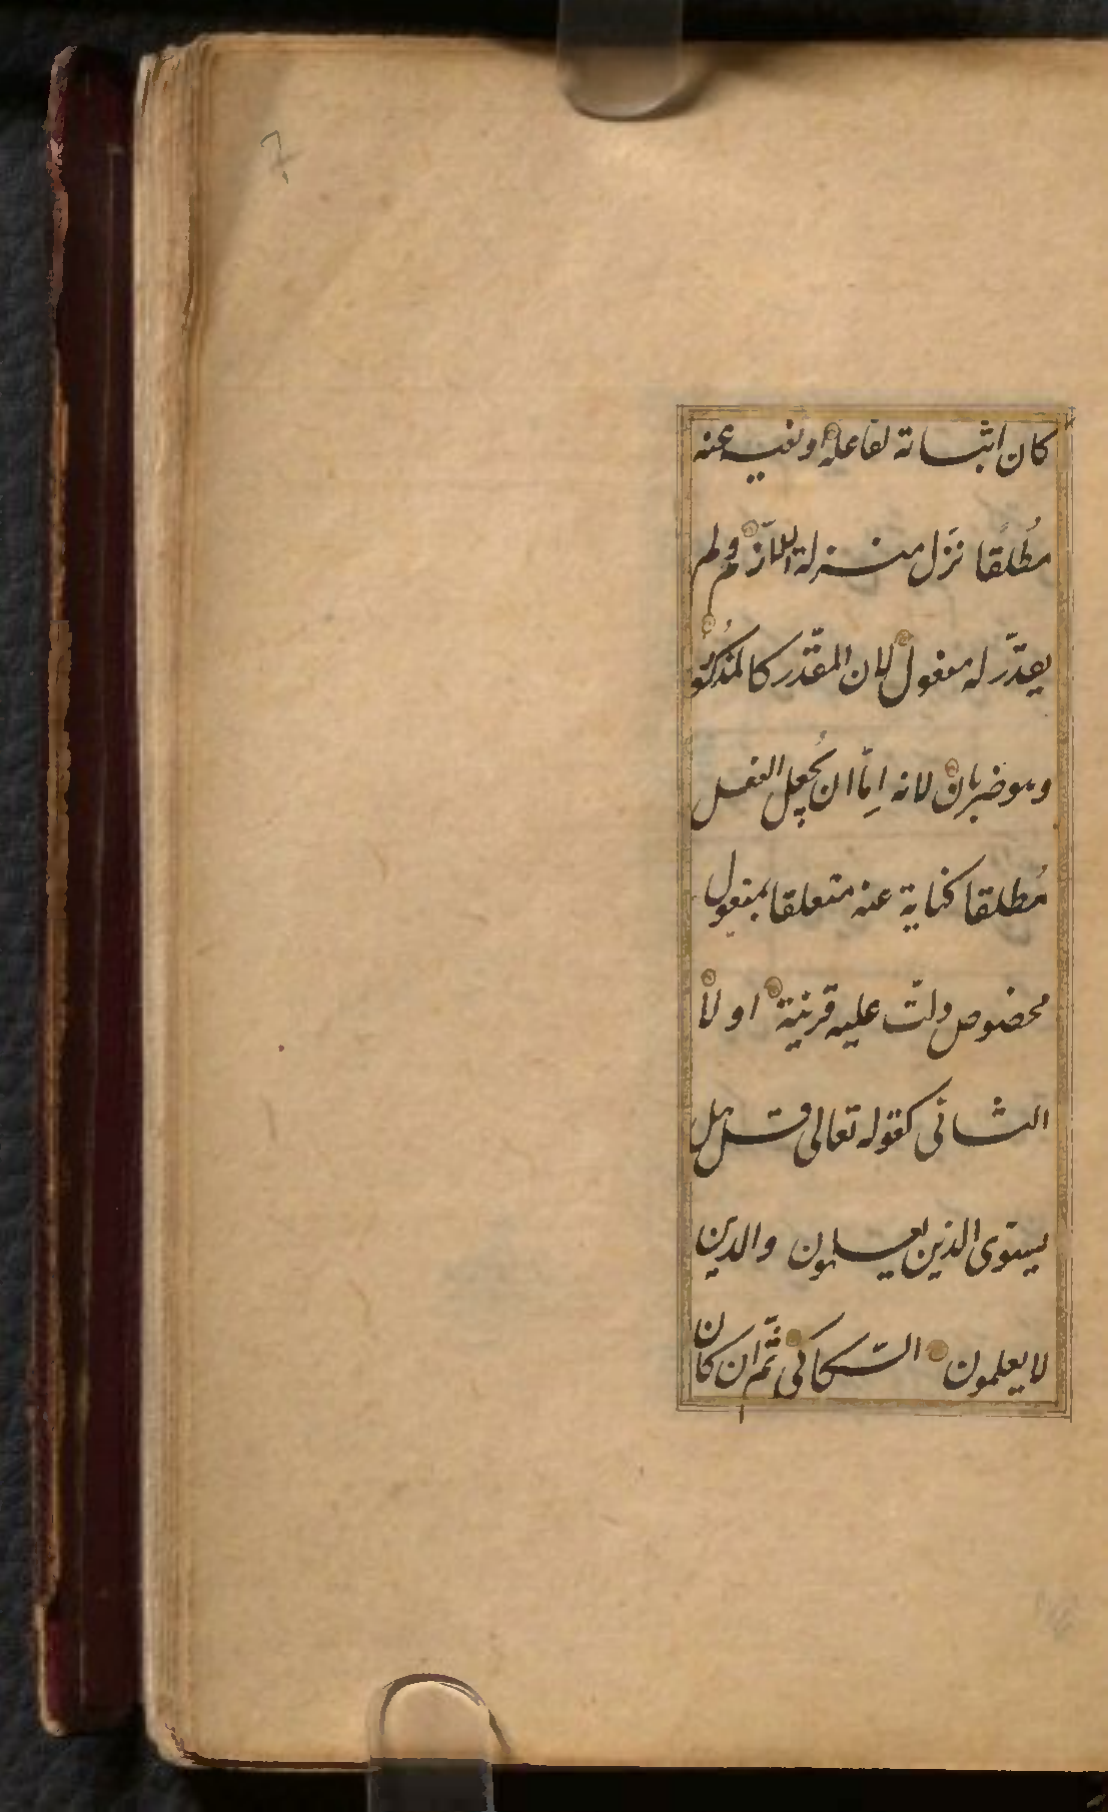 كان اثباته لفاعله او نفيه عنه
مُطلقًا نزّل منزلة اللازم ولم
يقدّر له مفعول لان المقدّر كالمذكُور
وهو ضربان لانه اِمّا ان يُجعل الفعل
مُطلقا كناية عنه متعلقا بمفعول
مخصوص دلّت عليه قرينة او لا
الثانى كقوله تعالى قل هل
يستوى الذين يعلمون والذين
لا يعلمون السّكاكى ثمّ ان كان